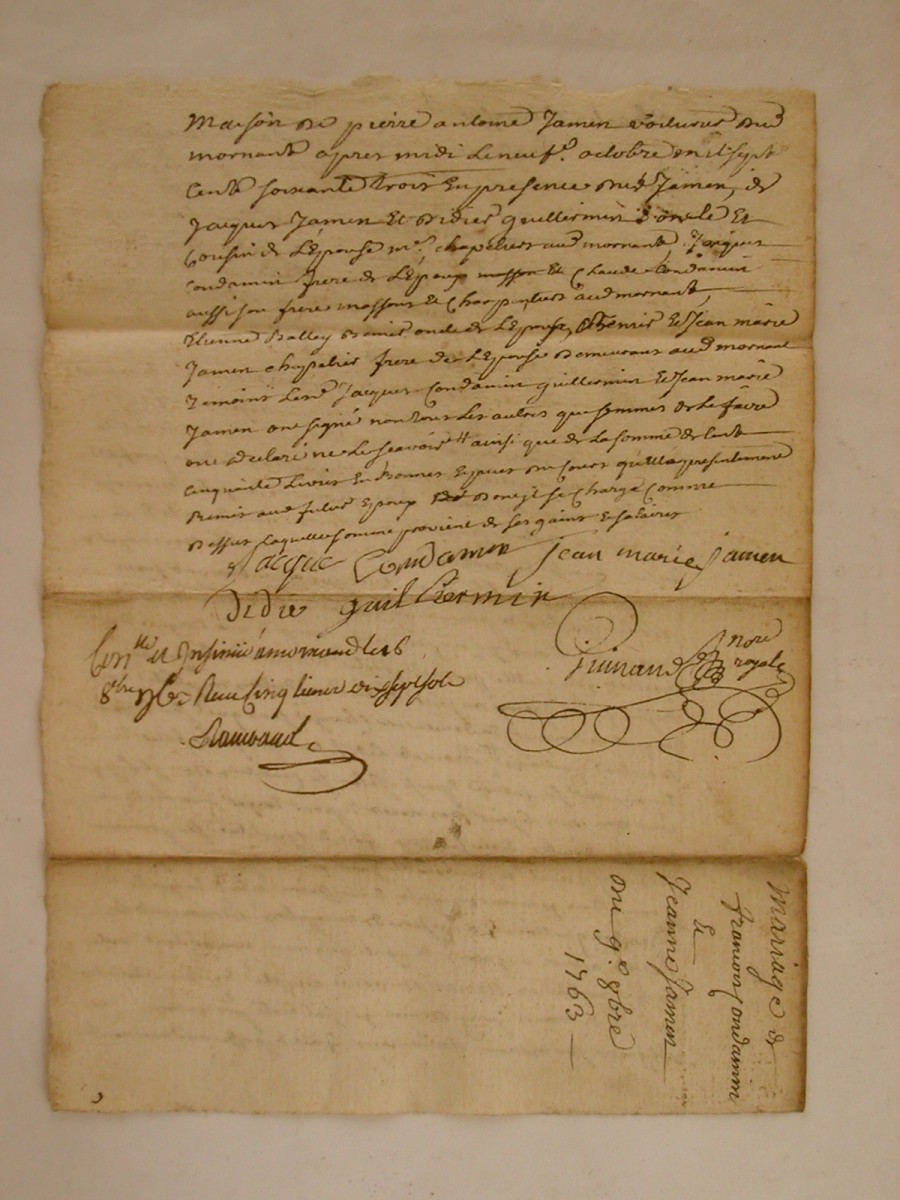 Maison de pierre antoine Jamen voiturier dud
mornant apres midi Le neuf.e octobre mil sept
cent soixante trois En presence dud Jamen, de
Jacques Jamen Et didier guillermin oncle Et
Cousin de L'Epouse m.e chapeliers aud mornant, Jacques
condamin frere de L'Epoux Et Claude Condamin
aussi son frere massons Et Charpentiers aud mornant
Etienne Balley oncle de L'Epouse, Et Jean marie
Jamen chapelier frere de L'Epouse demeurant aud mornant
Temoins Jacques Condamin guillermin Et Jean marie
Jamen ont signé non tous Les autres que sommes de Le faire
ont declaré ne Le scavoir ainsi que de La somme de Cent
cinquante Livres qu'Elle a presentement
Remis aud futur Epoux dont il se charge Comme
dessus laquelle somme provient de ses gains Et salaires
Jacque Condamin Jean marie Jamen
Didie guillermin
nore
royal
Con.lle et Insinué a mornand le 16
8bre 1763 Receu Cinq livres dix sept sols
Rambaud
Mariage de
francois Condamin
&
Jeanne Jamen
du 9.e 8bre
1763